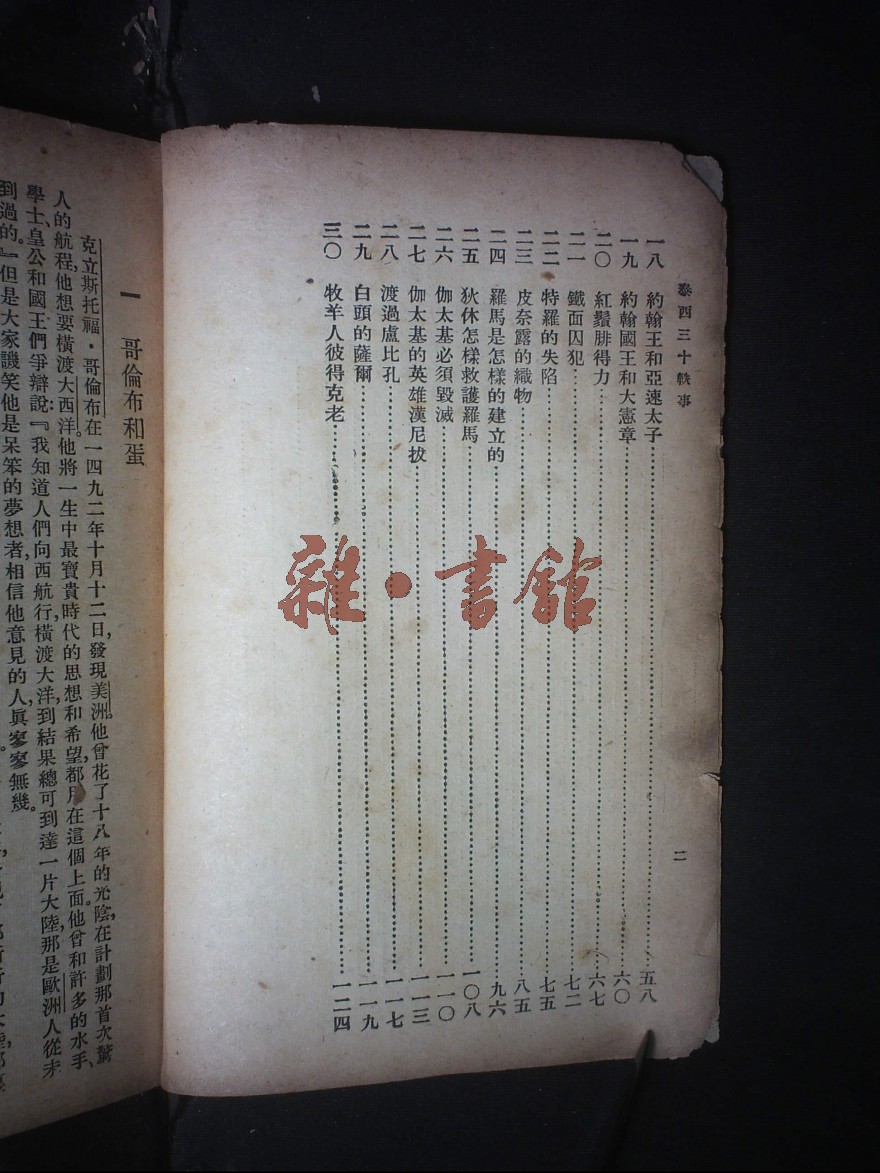 泰西三十軼事
二
一八 約翰王和亞速太子……五八
一九 約翰國王和大憲章……六〇
二〇 紅鬚腓得力……六七
二一 鐵面囚犯……七二
二二 特羅的失陷……七五
二三 皮奈露的織物……八五
二四 羅馬是怎樣的建立的……九六
二五 狄休怎樣救護羅馬……一〇八
二六 伽太基必須毀滅……一一〇
二七 伽太基的英雄漢尼拔……一一三
二八 渡過盧比孔……一一七
二九 白頭的薩爾……一一九
三〇 牧羊人彼得克老……一二四
雜·書館
一 哥倫布和蛋
克立斯托福·哥倫布在一四九二年十月十二日，發現美洲。他曾花了十八年的光陰，在計劃那首次驚
人的航程，他想要橫渡大西洋。他將一生中最寶貴時代的思想和希望，都用在這個上面。他曾和許多的水手、
學士、皇公和國王們爭辯說：『我知道人們向西航行，橫渡大洋，到結果總可到達一片大陸，那是歐洲人從未
到過的。』但是大家譏笑他是呆笨的夢想者，相信他意見的人，眞寥寥無幾。